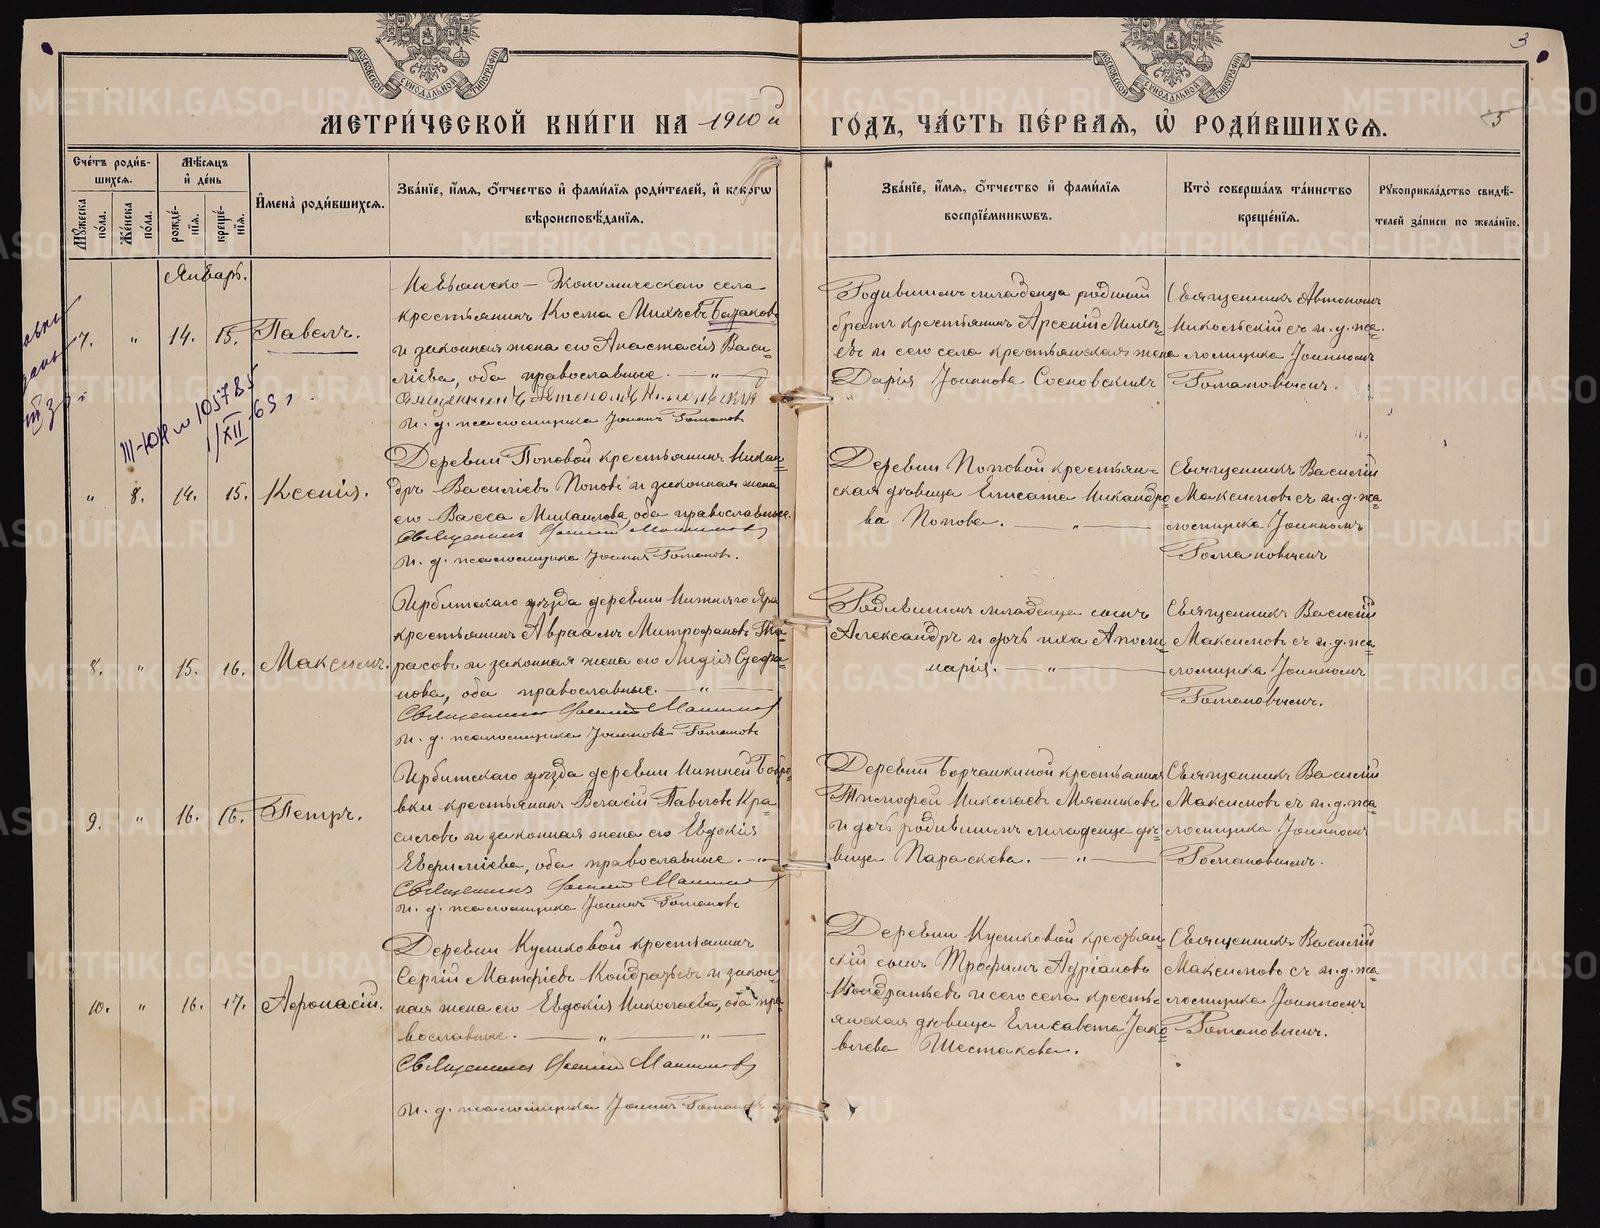 МОСКОВСКОЙ СѴНОДАЛЬНОЙ ТИПОГРАФІИ
МОСКОВСКОЙ СѴНОДАЛЬНОЙ ТИПОГРАФІИ
3
5
МЕТРИ́ЧЕСКОЙ КНИ́ГИ НА 1910 й ГО́ДЪ, ЧА́СТЬ ПЕ́РВАЯ, Ѡ РОДИ́ВШИХСЯ.
Сче́тъ роди́в-
шихся.
Мѣ́сяцъ
и҆ де́нь
Мꙋ́жеска
по́ла.
Же́нска
по́ла.
рожде́-
нїя.
креще́-
нїя.
И҆мена̀ роди́вшихся.
Зва́нїе, и҆́мя, ѻ҆́тчество и҆ фами́лїя роди́телей, и҆ како́гѡ
вѣроисповѣ́данїя.
Зва́нїе, и҆́мя, ѻ҆́тчество и҆ фами́лїя
воспрїе́мникѡвъ.
Кто̀ соверша́лъ та́инство
креще́нїя.
Рꙋкоприкла́дство свидѣ́-
телей за́писи по жела́нїю.
Январь.
7. " 14. 15. Павелъ.
Невьянско-Экономическаго села
крестьянинъ Косма Михѣевъ
и законная жена его Анастасія Васи-
ліева, оба православные. — " —
Священникъ Автономъ Никольскій
и. д. псаломщика Іоаннъ Романовъ
Родившимъ младенца родной
братъ крестьянинъ Арсеній Михѣ-
евъ и сего села крестьянская жена
Дарія Іоаннова Сосновскихъ
Священникъ Автономъ
Никольскій съ и. д. пса-
ломщика Іоанномъ
Романовымъ.
III-ЮН № 105785
1/XII-65 г.
" 8. 14. 15. Ксенія.
Деревни Поповой крестьянинъ Никан-
доръ Василіевъ Поповъ и законная жена
его Васса Михаилова, оба православные.
Священникъ Василій Максимовъ
и. д. псаломщика Іоаннъ Романовъ.
Деревни Поповой крестьян-
ская дѣвица Елисата Никандро-
ва Попова. — " —
Священникъ Василій
Максимовъ съ и. д. пса-
ломщика Іоанномъ
Романовымъ
8. " 15. 16. Максимъ.
Ирбитскаго уѣзда деревни Нижняго Яра
крестьянинъ Авраамъ Митрофановъ Та-
расовъ и законная жена его Лидія Стефа-
нова, оба православные. — " —
Священникъ Василій Максимовъ
и. д. псаломщика Іоаннъ Романовъ
Родившимъ младенца сынъ
Александръ и дочь ихъ Аполи-
нарія. — " —
Священникъ Василій
Максимовъ съ и. д. пса-
ломщика Іоанномъ
Романовымъ.
9. " 16. 16. Петръ.
Ирбитскаго уѣзда деревни Нижней Бобро-
вки крестьянинъ Власій Павловъ Кра-
силовъ и законная жена его Евдокія
Евфиміева, оба православные. — " —
Священникъ Василій Максимовъ
и. д. псаломщика Іоаннъ Романовъ
Деревни Борчанкиной крестьянинъ
Тимофей Николаевъ Мясниковъ
и дочь родившимъ младенца дѣ-
вица Параскева. — " —
Священникъ Василій
Максимовъ съ и. д. пса-
ломщика Іоанномъ
Романовымъ.
10. " 16. 17. Афонасій.
Деревни Куликовой крестьянинъ
Сергій Матфіевъ Кондратьевъ и закон-
ная жена его Евдокія Николаева, оба пра-
вославные. — " — " —
Священникъ Василій Максимовъ
и. д. псаломщика Іоаннъ Романовъ
Деревни Куликовой крестьян-
скій сынъ Трофимъ Адріановъ
Кондратьевъ и сего села кресть-
янская дѣвица Елисавета Іако-
влева Шестакова.
Священникъ Василій
Максимовъ съ и. д. пса-
ломщика Іоанномъ
Романовымъ.
METRIKI.GASO-URAL.RU